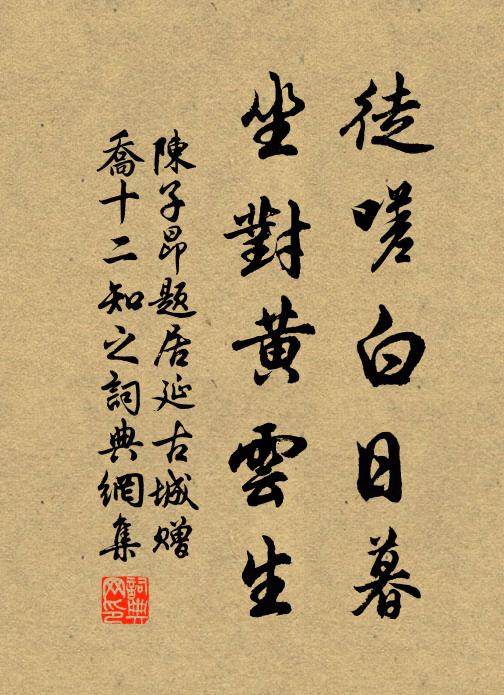 徒嗟白日暮
坐對黄雲生
陳子昂题居延古城赠
喬十二知之詞典網集
詞典网印